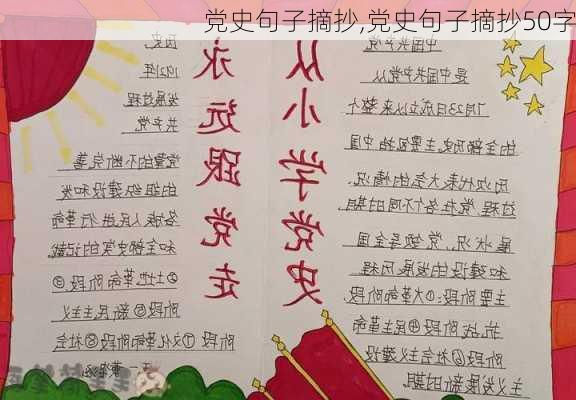 党史句子摘抄,党史句子摘抄50字
从小学党史
永远跟党走
中国共产党
历史
是中国共产党从
1921年
7月23日成立以来整个
发展过程
的全部历史主要包括中国
共产党
历次代表大会的情况、
党章的不断完善
过程,党在各个不同的时期
的组织建设和发
况,党领导全国
各族人民进行革命
和建设的发展历程
和全部史实的记载
主要阶段:①大革命阶段,
②土地革命阶段③
抗战阶段④民主革命
阶段⑤新民主主义
阶段⑥社会主义建设
阶段⑦文化革命阶段⑧社会
主义发展新时期.